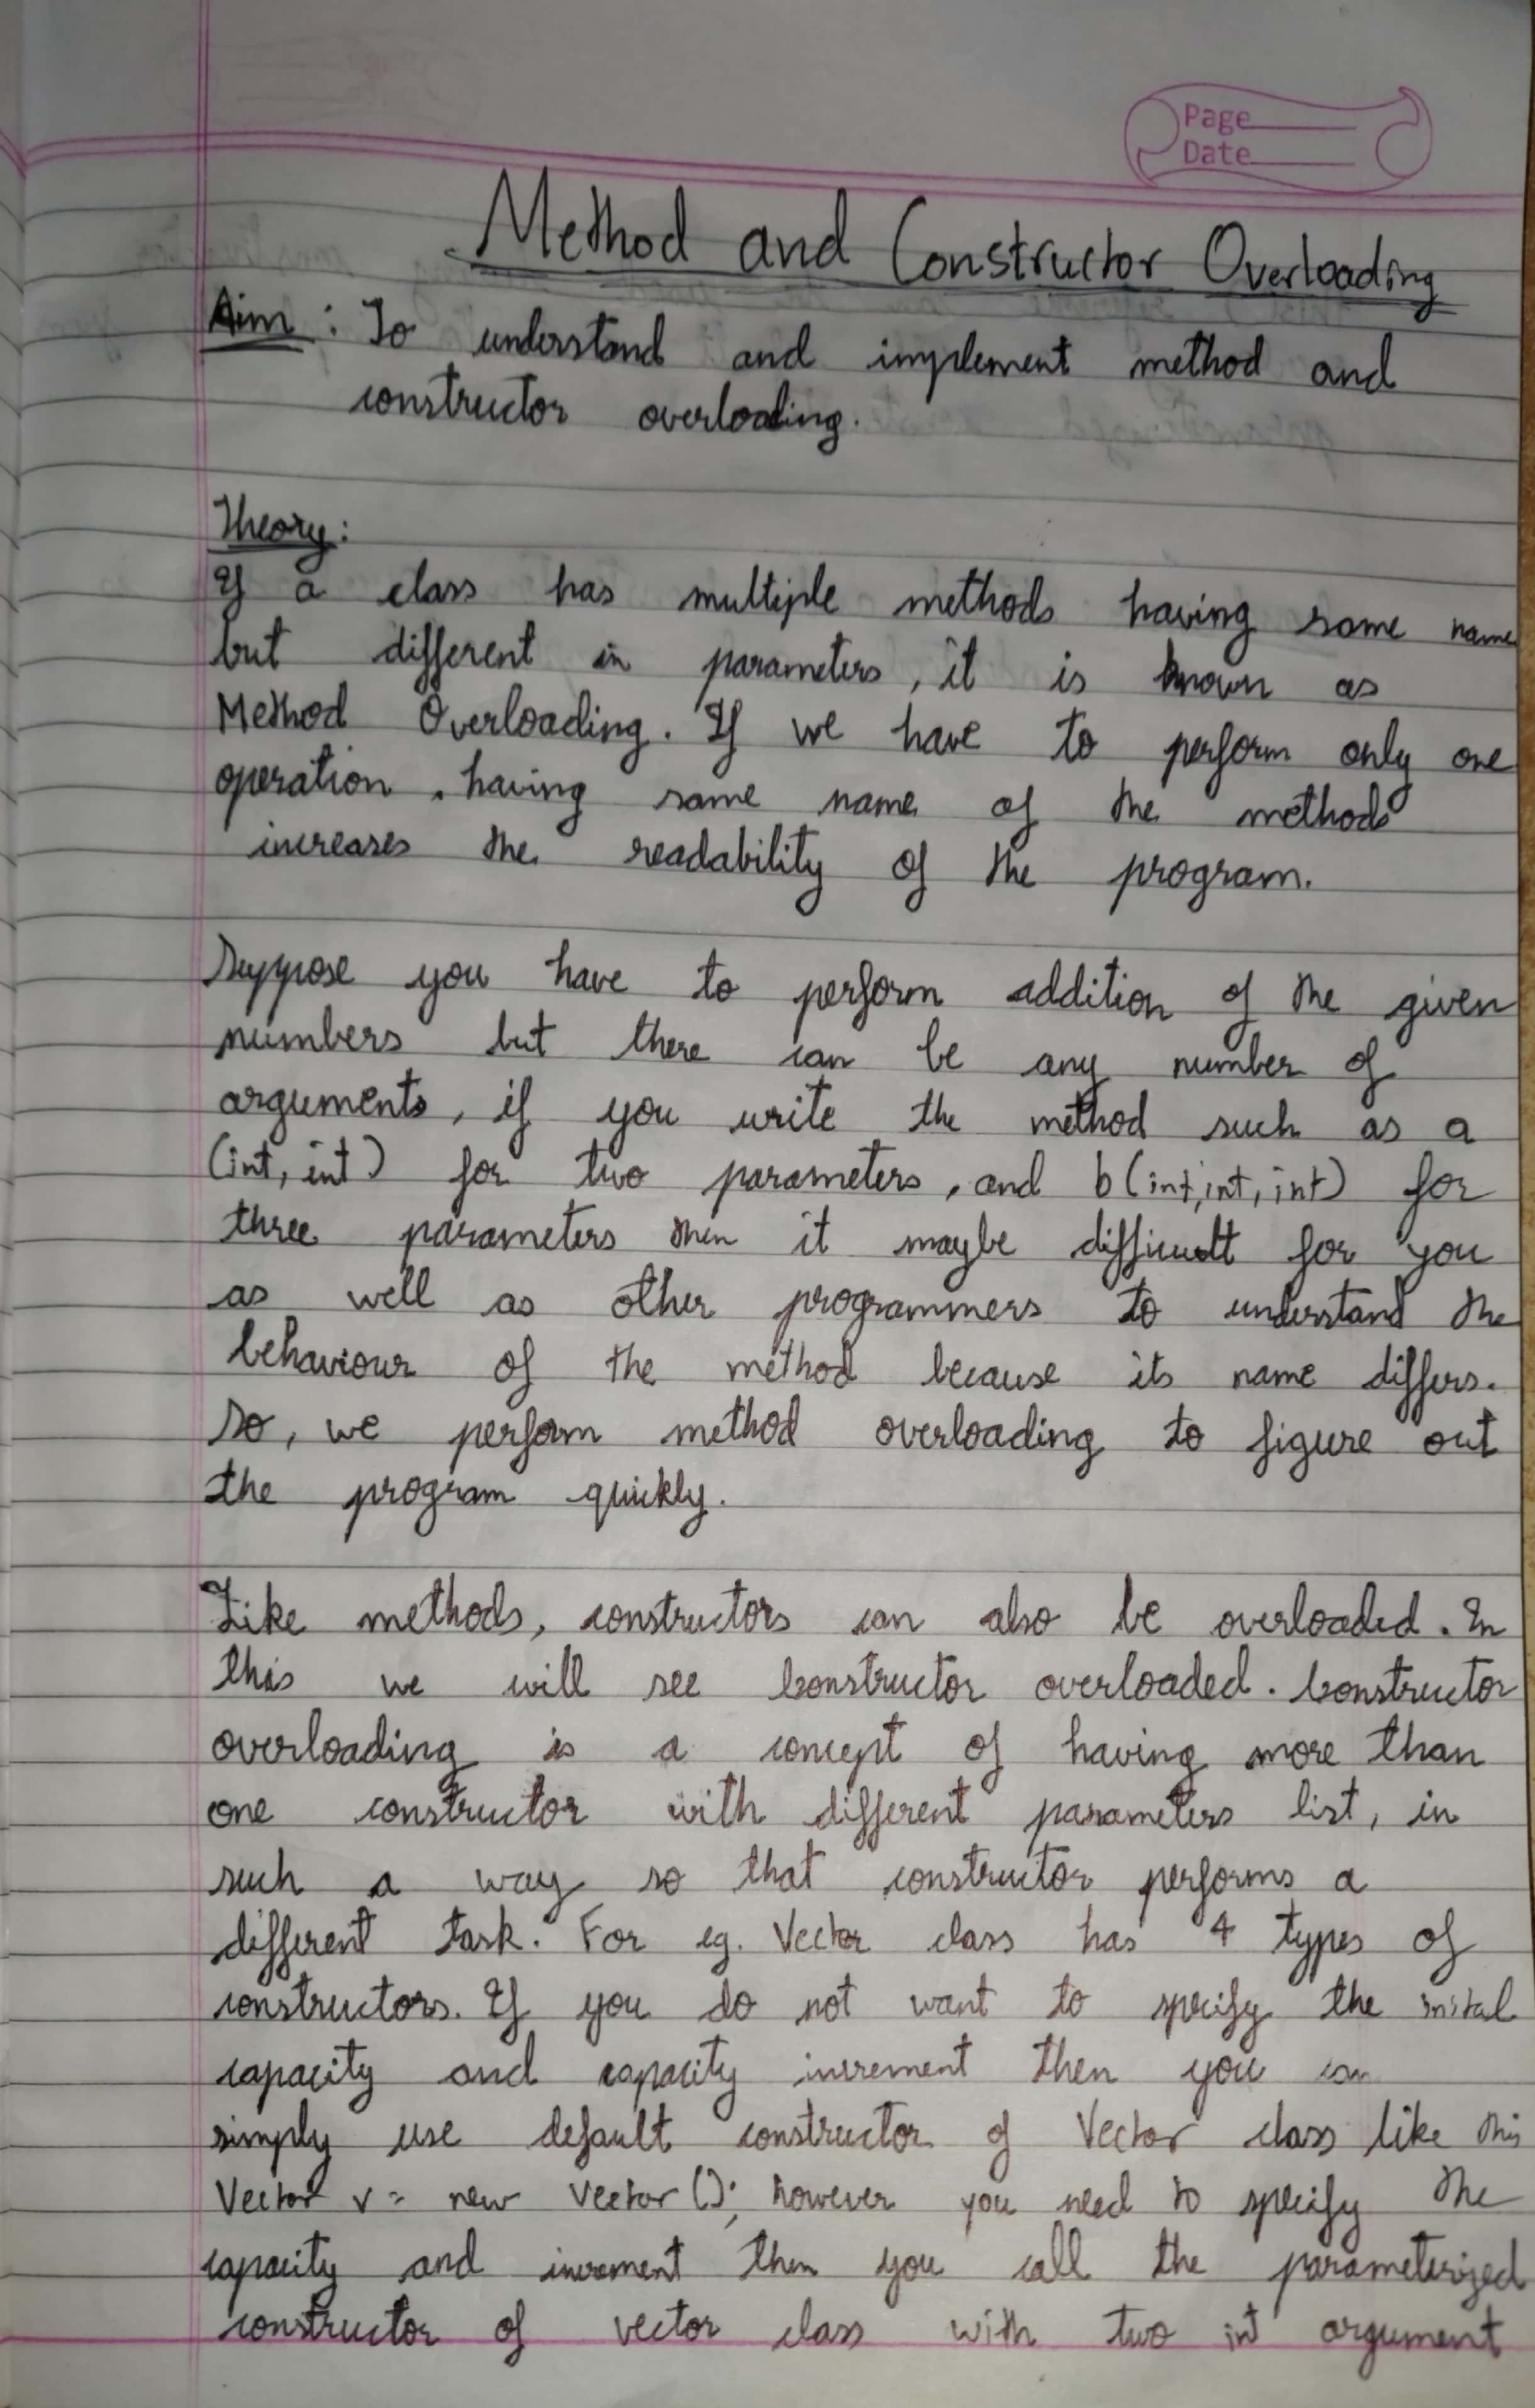 Page
Date
Method and Constructor Overloading
Aim : To understand and implement method and
constructor overloading.
Theory:
If a class has multiple methods having same name
but different in parameters, it is known as
Method Overloading. If we have to perform only one
operation, having same name of the methods
increases the readability of the program.
Suppose you have to perform addition of the given
numbers but there can be any number of
arguments, if you write the method such as a
(int, int) for two parameters, and b(int,int, int) for
three parameters then it maybe difficult for you
as well as other programmers to understand the
behaviour of the method because its name differs.
So, we perform method overloading to figure out
the program quickly.
Like methods, constructors can also be overloaded. In
this we will see Constructor overloaded. Constructor
overloading is a concept of having more than
one constructor with different parameters list, in
such a way so that constructor performs a
different task. For eg. Vector class has 4 types of
constructors. If you do not want to specify the
capacity and capacity increment then you can
simply use default constructor of Vector class like this
Vector v = new Vector(); however you need to specify the
capacity and increment then you call the parameterized
constructor of vector class with two int argument